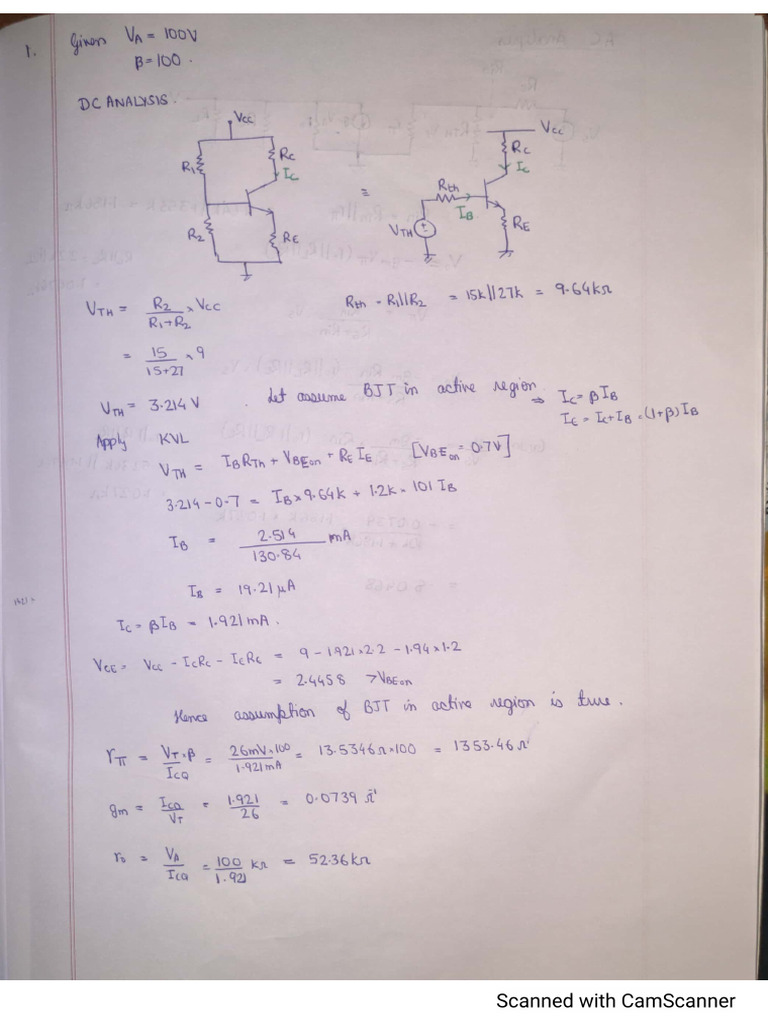 1. Given VA = 100V
β = 100.
DC ANALYSIS.
Vcc
R1
Rc
Ic
R2
RE
=
Vcc
Rc
Ic
Rth
IB
VTH
RE
VTH = R2/(R1+R2) × Vcc
Rth = R1||R2 = 15k||27k = 9.64kΩ
= 15/(15+27) × 9
VTH = 3.214 V. Let assume BJT in active region ⇒ Ic = βIB
IE = Ic+IB = (1+β)IB
Apply KVL
VTH = IBRTh + VBEon + REIE [VBEon = 0.7V]
3.214-0.7 = IB×9.64k + 1.2k × 101 IB
IB = 2.514/130.84 mA
IB = 19.21 μA
Ic = βIB = 1.921 mA.
VCE = Vcc - IcRc - IcRc = 9 - 1.921×2.2 - 1.94×1.2
= 2.4458 > VBEon
Hence assumption of BJT in active region is true.
rπ = VT×β/ICQ = 26mV×100/1.921mA = 13.5346Ω×100 = 1353.46Ω
gm = ICQ/VT = 1.921/26 = 0.0739 Ω⁻¹
ro = VA/ICQ = 100/1.921 kΩ = 52.36kΩ
Scanned with CamScanner